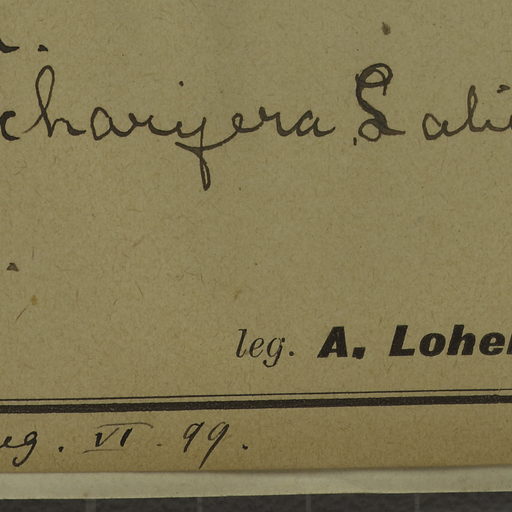 charifera Sali
leg. A. Loher
eg. VI. 99.